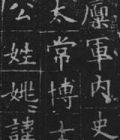 廩軍內史
太常博士
公姓姚諱